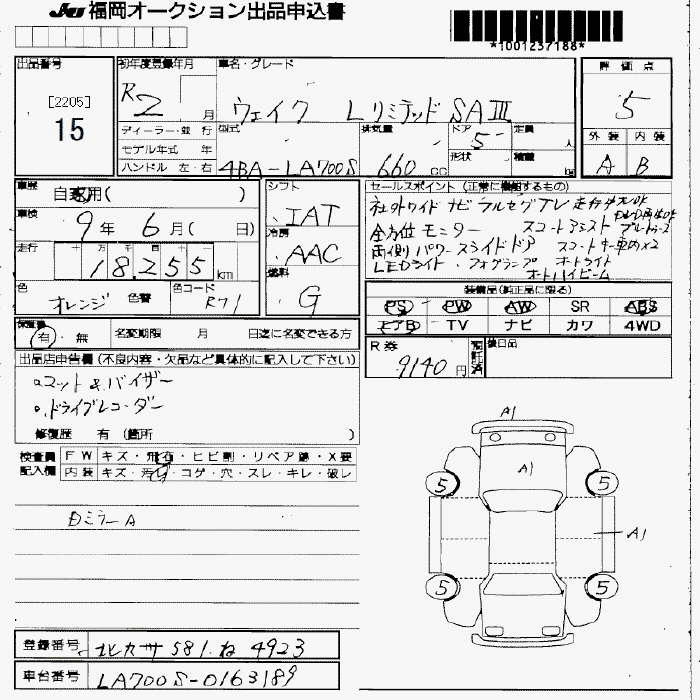 JU 福岡オークション出品申込書
*1001237188*
出品番号
[2205]
15
初年度登録年月
R2 月
車名・グレード
ウェイク Lリミテッド SAⅢ
評価点
5
外装 内装
A B
ディーラー・並 行
モデル年式 年
ハンドル 左・右
型式
4BA-LA700S
排気量
660 cc
ドア
5
形状
定員
人
積載
kg
車歴
自家用( )
車検
9年 6月( 日)
走行
十 万 千 百 十
18,255 km
色
オレンジ
色替
色コード
R71
シフト
IAT
冷房
AAC
燃料
G
セールスポイント (正常に機能するもの)
社外ワイド ナビ フルセグTV 走行中TV OK
DVD再生OK
全方位モニター スマートアシスト ブルートゥース
両側パワースライドドア スマートキー車内×2
LEDライト ・フォグランプ オートライト
オートハイビーム
装備品(純正品に限る)
PS PW AW SR ABS
エアB TV ナビ カワ 4WD
保証書
有・無
名変期限 月 日迄に名変できる方
R券
9140円
預託済
後日品
出品店申告欄 (不良内容・欠品など具体的に記入して下さい)
○マット&バイザー
○ドライブレコーダー
修復歴 有 (箇所 )
検査員記入欄
FW キズ・飛石・ヒビ割・リペア跡・X要
内装 キズ・汚れ・コゲ・穴・スレ・キレ・破レ
DミラーA
A1
A1
5 5
A1
5 5
登録番号 北九州 581 ね 4923
車台番号 LA700S-0163189